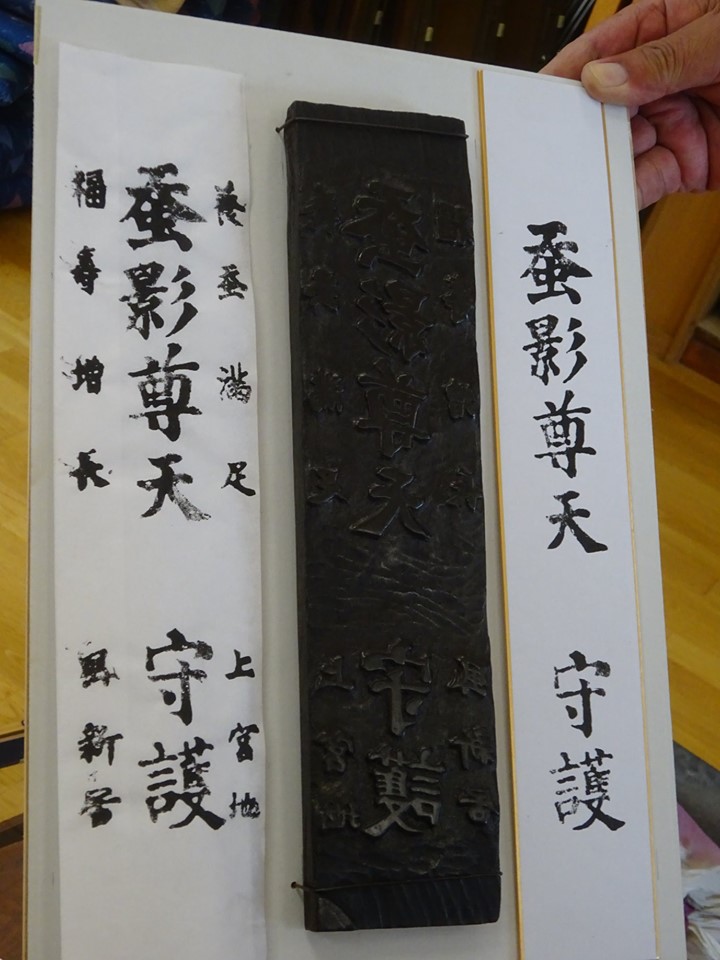 蚕影尊天 守護
蚕影尊天 守護
養蚕満足 上宮地
蚕影尊天 守護
福寿増長 新居